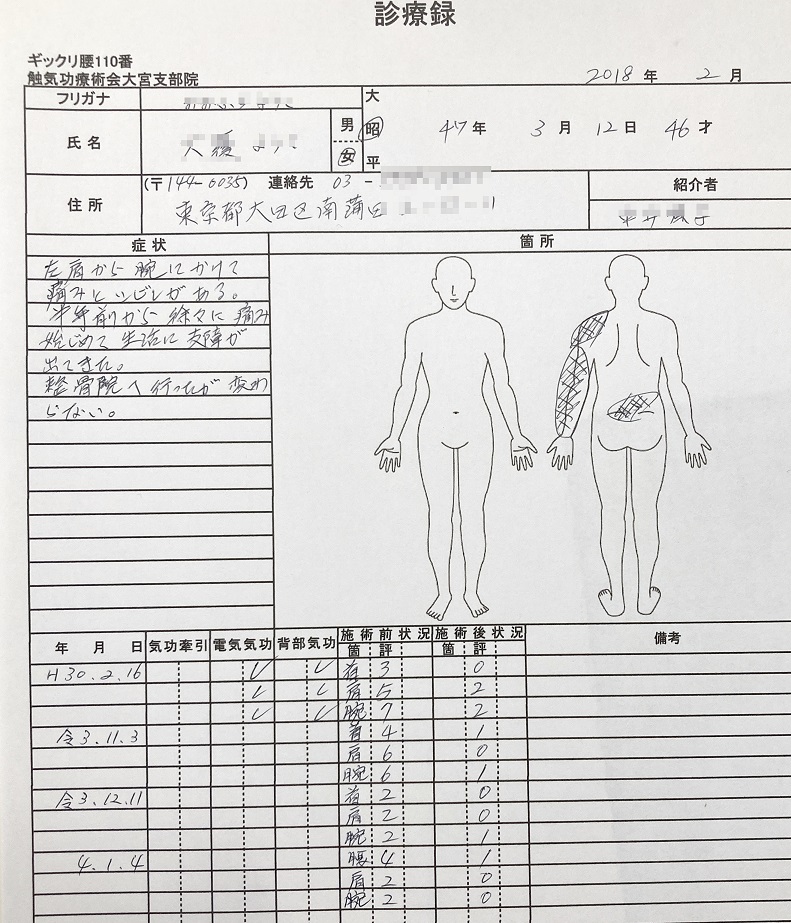 診療録
ギックリ腰110番
触気功療術会大宮支部院
2018年 2月
フリガナ
大
氏名
男
女
昭
平
47年 3月 12日 46才
(〒144-0035) 連絡先 03-
紹介者
住所
東京都大田区南蒲田
症状
箇所
左肩から腕にかけて
痛みとシビレがある。
半年前から徐々に痛み
始じめて生活に支障が
出てきた。
整骨院へ行ったが変わ
らない。
年 月 日 気功牽引 電気気功 背部気功 施術前状況 施術後状況 備考
箇 評 箇 評
H30.2.16 レ レ 首 3 0
レ レ 肩 5 2
レ レ 腕 7 2
令3.11.3 首 4 1
肩 6 0
腕 6 1
令3.12.11 首 2 0
肩 2 0
腕 2 1
4.1.4 腰 4 1
肩 2 0
腕 2 0